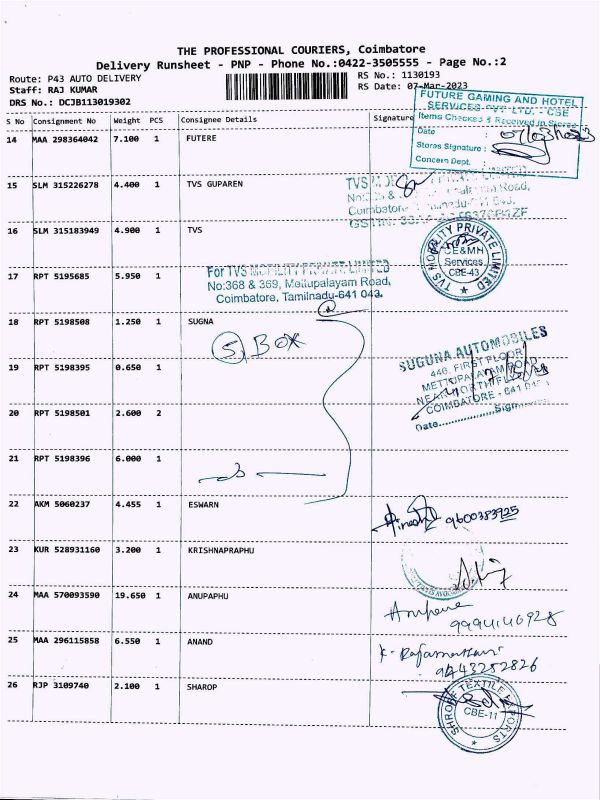 THE PROFESSIONAL COURIERS, Coimbatore
Delivery Runsheet - PNP - Phone No.:0422-3505555 - Page No.:2
Route: P43 AUTO DELIVERY RS No.: 1130193
Staff: RAJ KUMAR RS Date: 07-Mar-2023
DRS No.: DCJB113019302
FUTURE GAMING AND HOTEL
SERVICES PVT. LTD. - CBE
Items Checked & Received in Stores
Date :
Stores Signature :
Concern Dept. :
S No Consignment No Weight PCS Consignee Details Signature
14 MAA 298364042 7.100 1 FUTERE
15 SLM 315226278 4.400 1 TVS GUPAREN
16 SLM 315183949 4.900 1 TVS
TVS MOBILITY PRIVATE LIMITED
CE&MH
Services
CBE-43
17 RPT 5195685 5.950 1
For TVS MOBILITY PRIVATE LIMITED
No:368 & 369, Mettupalayam Road,
Coimbatore, Tamilnadu-641 043.
18 RPT 5198508 1.250 1 SUGNA
5, BOX
SUGUNA AUTOMOBILES
446, FIRST FLOOR
METTUPALAYAM ROAD
NEAR NORTH FLYOVER
COIMBATORE - 641
Date
19 RPT 5198395 0.650 1
20 RPT 5198501 2.600 2
21 RPT 5198396 6.000 1
22 AKM 5060237 4.455 1 ESWARN
9600383925
23 KUR 528931160 3.200 1 KRISHNAPRAPHU
24 MAA 570093590 19.650 1 ANUPAPHU
9994140928
25 MAA 296115858 6.550 1 ANAND
9443252826
26 RJP 3109740 2.100 1 SHAROP
CBE-11